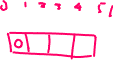 0 1 2 3 4 5
0